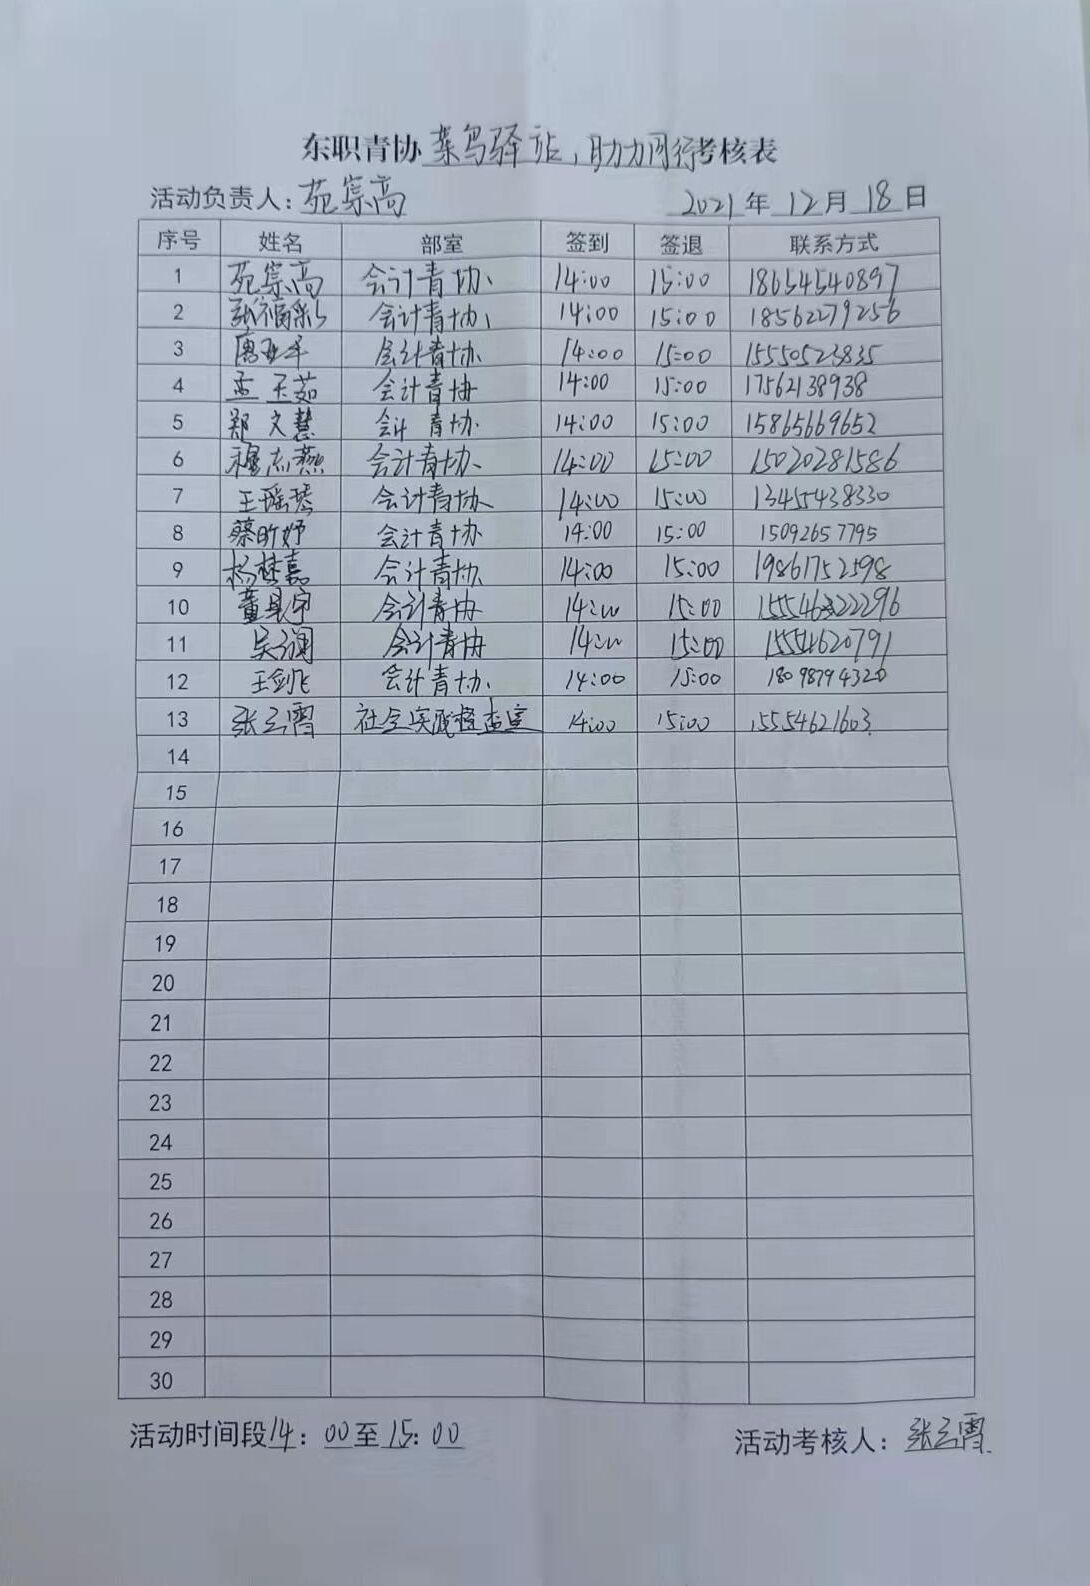 东职青协菜鸟驿站，助力同行考核表
活动负责人：苑崇高 2021年12月18日
序号 姓名 部室 签到 签退 联系方式
1 苑崇高 会计青协 14:00 15:00 18654540897
2 张福彩 会计青协 14:00 15:00 18562279256
3 唐亚平 会计青协 14:00 15:00 15550523835
4 孟玉茹 会计青协 14:00 15:00 17562138938
5 郑文慧 会计青协 14:00 15:00 15865669652
6 穆志燕 会计青协 14:00 15:00 15020281586
7 王瑶琴 会计青协 14:00 15:00 13455438330
8 蔡昕妤 会计青协 14:00 15:00 15092657795
9 杨梦嘉 会计青协 14:00 15:00 19861752598
10 会计青协 14:00 15:00
11 吴澜 会计青协 14:00 15:00 15554620791
12 王剑飞 会计青协 14:00 15:00 18098794320
13 张云霄 社会实践督查室 14:00 15:00 15554621603
14
15
16
17
18
19
20
21
22
23
24
25
26
27
28
29
30
活动时间段14：00至15：00 活动考核人：张云霄